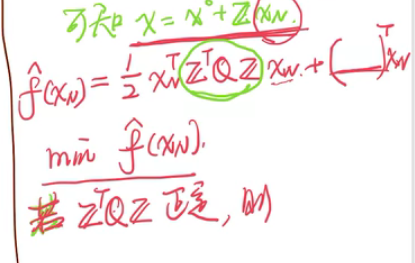 可知 x = x⁰ + Z x_N.
f̂(x_N) = 1/2 x_N^T Z^T Q Z x_N + (__)^T x_N
min f̂(x_N).
若 Z^T Q Z 正定, 则